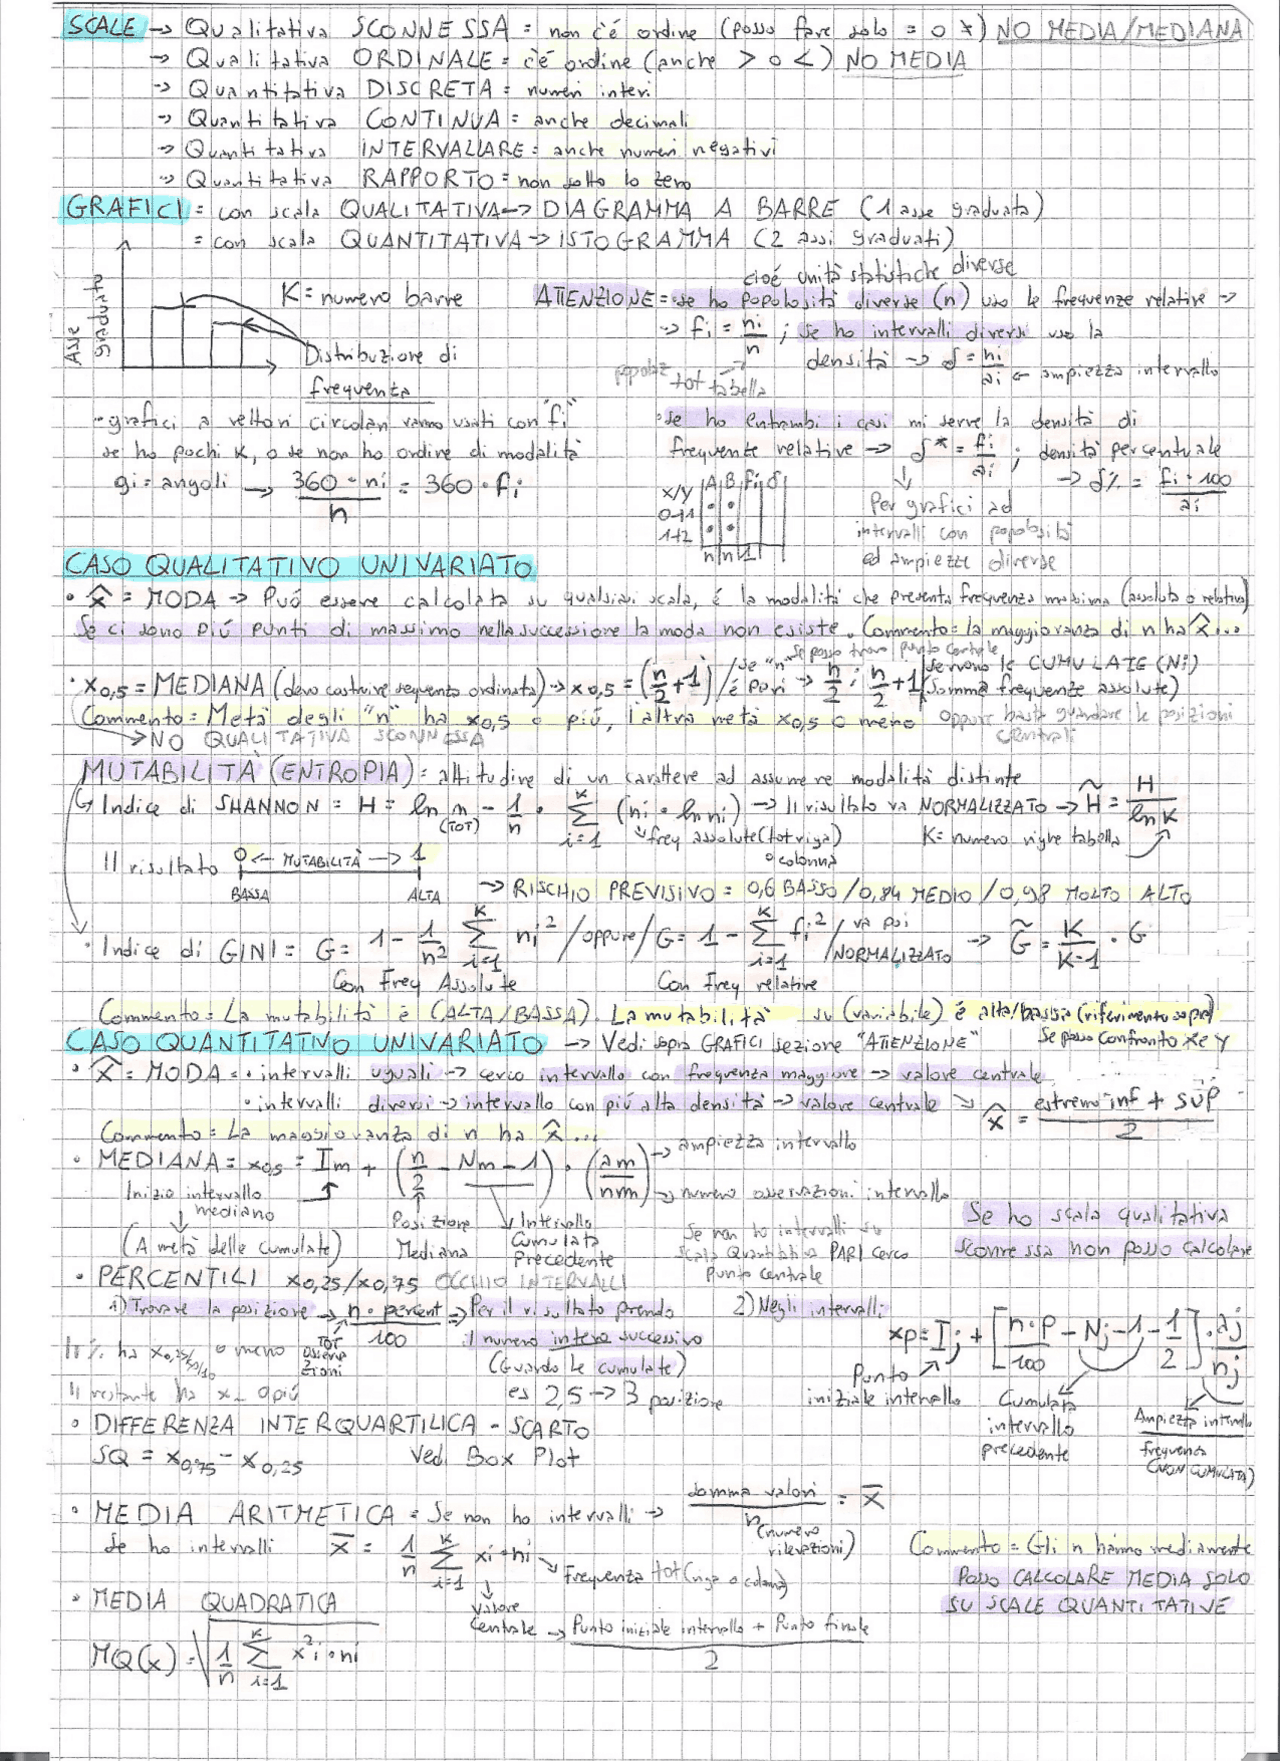 SCALE → Qualitativa SCONNESSA = non c'è ordine (posso fare solo = o ≠) NO MEDIA/MEDIANA
→ Qualitativa ORDINALE = c'è ordine (anche > o <) NO MEDIA
→ Quantitativa DISCRETA = numeri interi
→ Quantitativa CONTINUA = anche decimali
→ Quantitativa INTERVALLARE = anche numeri negativi
→ Quantitativa RAPPORTO = non sotto lo zero
GRAFICI = con scala QUALITATIVA → DIAGRAMMA A BARRE (1 asse graduata)
= con scala QUANTITATIVA → ISTOGRAMMA (2 assi graduati)
Asse graduato
K = numero barre
Distribuzione di
frequenza
cioé unità statistiche diverse
ATTENZIONE = se ho popolosità diverse (n) uso le frequenze relative →
→ fi = ni/n ; se ho intervalli diversi uso la
densità → δ = ni/ai ← ampiezza intervallo
tot tabella
- grafici a vettori circolari vanno usati con "fi"
se ho pochi K, o se non ho ordine di modalità
gi = angoli → 360 · ni / n = 360 · fi
• se ho entrambi i casi mi serve la densità di
frequente relative → δ* = fi/ai ; densità percentuale
→ δ% = fi · 100 / ai
x/y | A | B | fi | δ
0⊣1
1⊣2
n | n | 1
Per grafici ad
intervalli con popolosità
ed ampiezze diverse
CASO QUALITATIVO UNIVARIATO
• x̂ = MODA → Può essere calcolata su qualsiasi scala, é la modalità che presenta frequenza massima (assoluta o relativa)
Se ci sono più punti di massimo nella successione la moda non esiste. Commento = la maggioranza di n ha x̂...
Se posso trovo punto centrale
• x0,5 = MEDIANA (devo costruire sequenza ordinata) → x0,5 = (n/2 + 1) / se "n" é pari → n/2 ; n/2 + 1 / servono le CUMULATE (Ni) (somma frequenze assolute)
Commento = Metà degli "n" ha x0,5 o più, l'altra metà x0,5 o meno
oppure basta guardare le posizioni centrali
→ NO QUALITATIVA SCONNESSA
MUTABILITÀ (ENTROPIA) = attitudine di un carattere ad assumere modalità distinte
↳ Indice di SHANNON = H = ln n (TOT) - 1/n · Σ i=1 K (ni · ln ni) → Il risultato va NORMALIZZATO → H̃ = H / ln K
freq assolute (tot riga o colonna)
K = numero righe tabella
Il risultato 0 ← MUTABILITÀ → 1
BASSA ALTA
→ RISCHIO PREVISIVO = 0,6 BASSO / 0,84 MEDIO / 0,98 MOLTO ALTO
• Indice di GINI = G = 1 - 1/n² Σ i=1 K ni² / oppure / G = 1 - Σ i=1 K fi² / va poi NORMALIZZATO → G̃ = K/K-1 · G
Con Freq Assolute
Con Freq relative
Commento = La mutabilità è (ALTA/BASSA). La mutabilità su (variabile) é alta/bassa (riferimento sopra)
Se posso confronto X e Y
CASO QUANTITATIVO UNIVARIATO → Vedi sopra GRAFICI sezione "ATTENZIONE"
• x̂ = MODA = • intervalli uguali → cerco intervallo con frequenza maggiore → valore centrale
• intervalli diversi → intervallo con più alta densità → valore centrale → x̂ = estremo inf + sup / 2
Commento = La maggioranza di n ha x̂...
• MEDIANA = x0,5 = Im + (n/2 - Nm - 1) · (am/nm)
→ ampiezza intervallo
→ numero osservazioni intervallo
Inizio intervallo mediano
(A metà delle cumulate)
Posizione Mediana
Intervallo Cumulata Precedente
Se non ho intervalli su
scala Quantitativa PARI cerco
Punto centrale
Se ho scala qualitativa
sconnessa non posso calcolare
• PERCENTILI x0,25/x0,75 OCCHIO INTERVALLI
1) Trovare la posizione → n · percent / 100 → Per il risultato prendo
il numero intero successivo
(Guardo le cumulate)
es 2,5 → 3 posizione
TOT osservazioni
Il % ha x0,25/ o meno
Il restante ha x... o più
2) Negli intervalli
xp = Ij + [n·p/100 - Nj - 1 - 1/2] · aj/nj
Punto
iniziale intervallo
Cumulata
intervallo
precedente
Ampiezza intervallo
frequenza
(NON CUMULATA)
• DIFFERENZA INTERQUARTILICA - SCARTO
SQ = x0,75 - x0,25 Vedi Box Plot
• MEDIA ARITMETICA = Se non ho intervalli → somma valori / n (numero rilevazioni) = x̄
Se ho intervalli x̄ = 1/n Σ i=1 K xi · ni
→ Frequenza tot (riga o colonna)
Valore
Centrale → Punto iniziale intervallo + Punto finale / 2
Commento = Gli n hanno mediamente
Posso CALCOLARE MEDIA SOLO
SU SCALE QUANTITATIVE
• MEDIA QUADRATICA
MQ(x) = √ 1/n Σ i=1 K x²i · ni